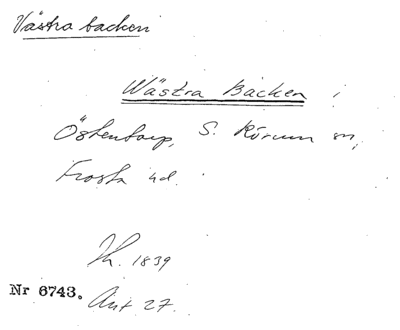 Västra backen
Wästra Backen i
Östentorp, S. Rörum sn,
Frosta hd.
Th. 1839
Nr 6743. Akt 27.